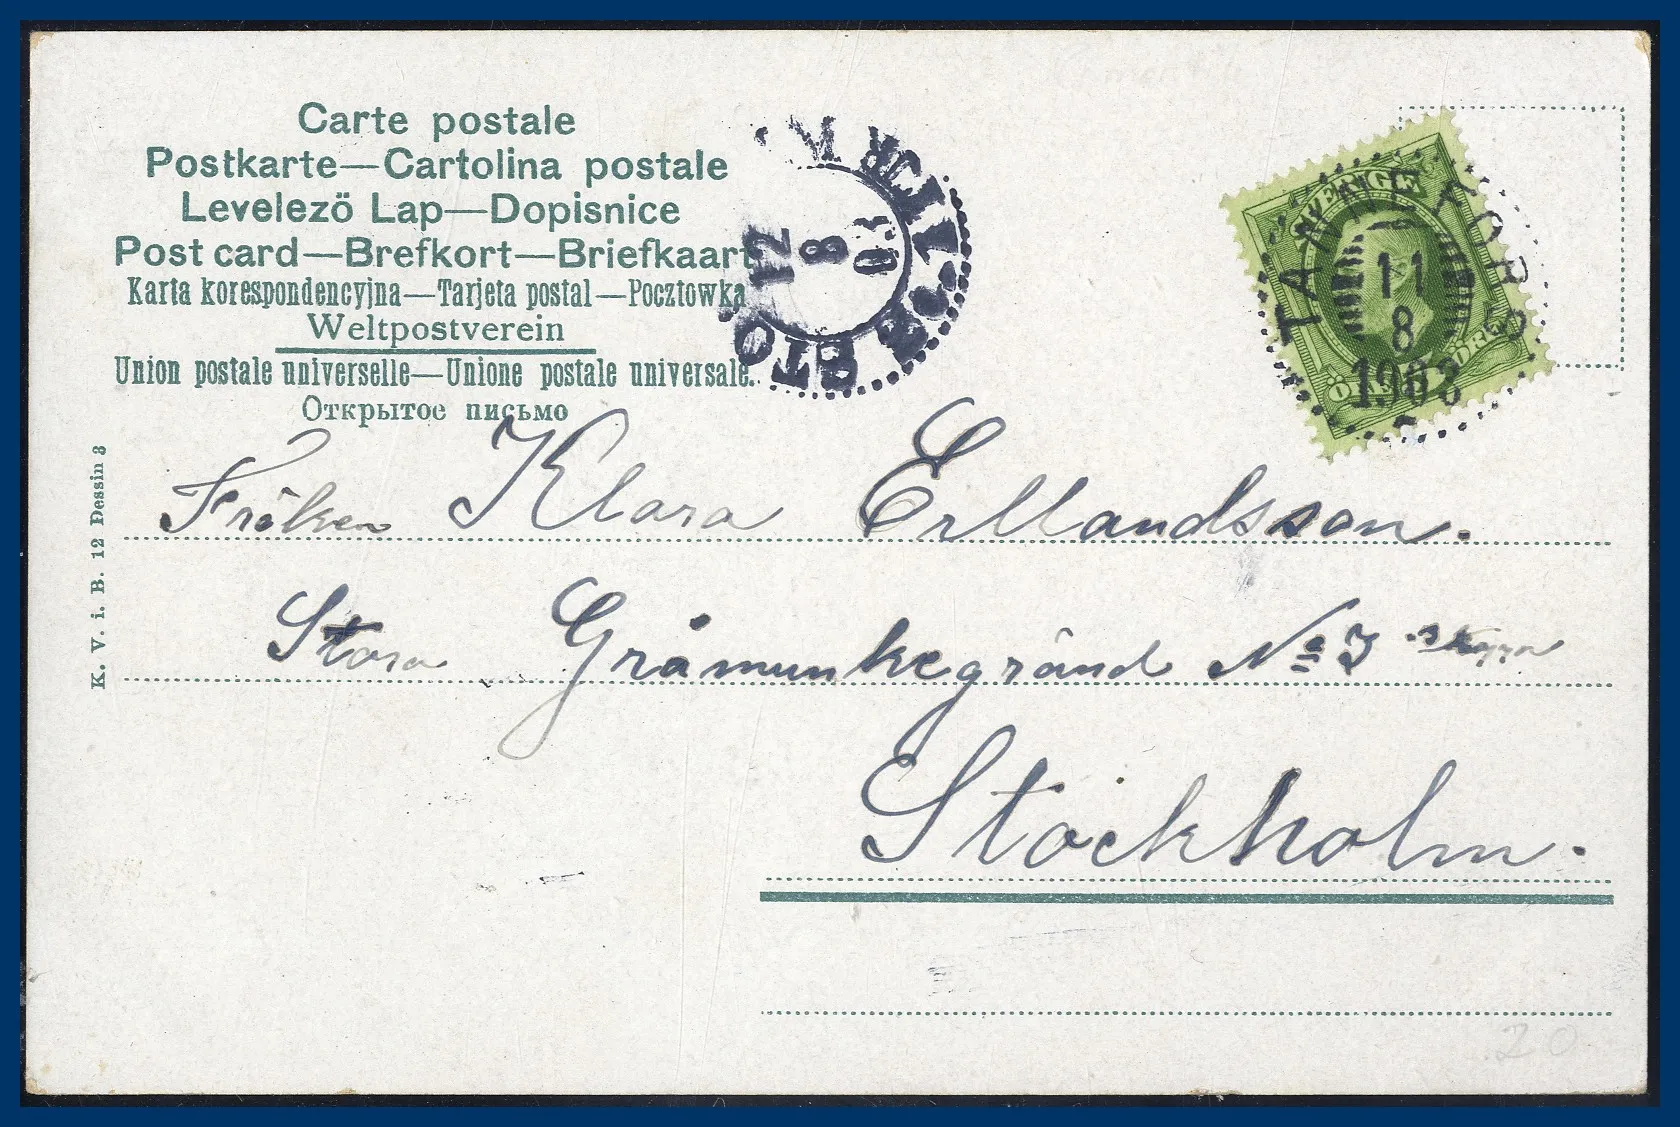 Carte postale
Postkarte—Cartolina postale
Levelező Lap—Dopisnice
Post card—Brefkort—Briefkaart
Karta korespondencyjna—Tarjeta postal—Pocztowka
Weltpostverein
Union postale universelle—Unione postale universale.
Открытое письмо
12
8
03
SVERIGE
11
8
1903
K. V. i. B. 12 Dessin 3
Fröken Klara Erlandsson.
Stora Gråmunkegränd No
Stockholm.
20